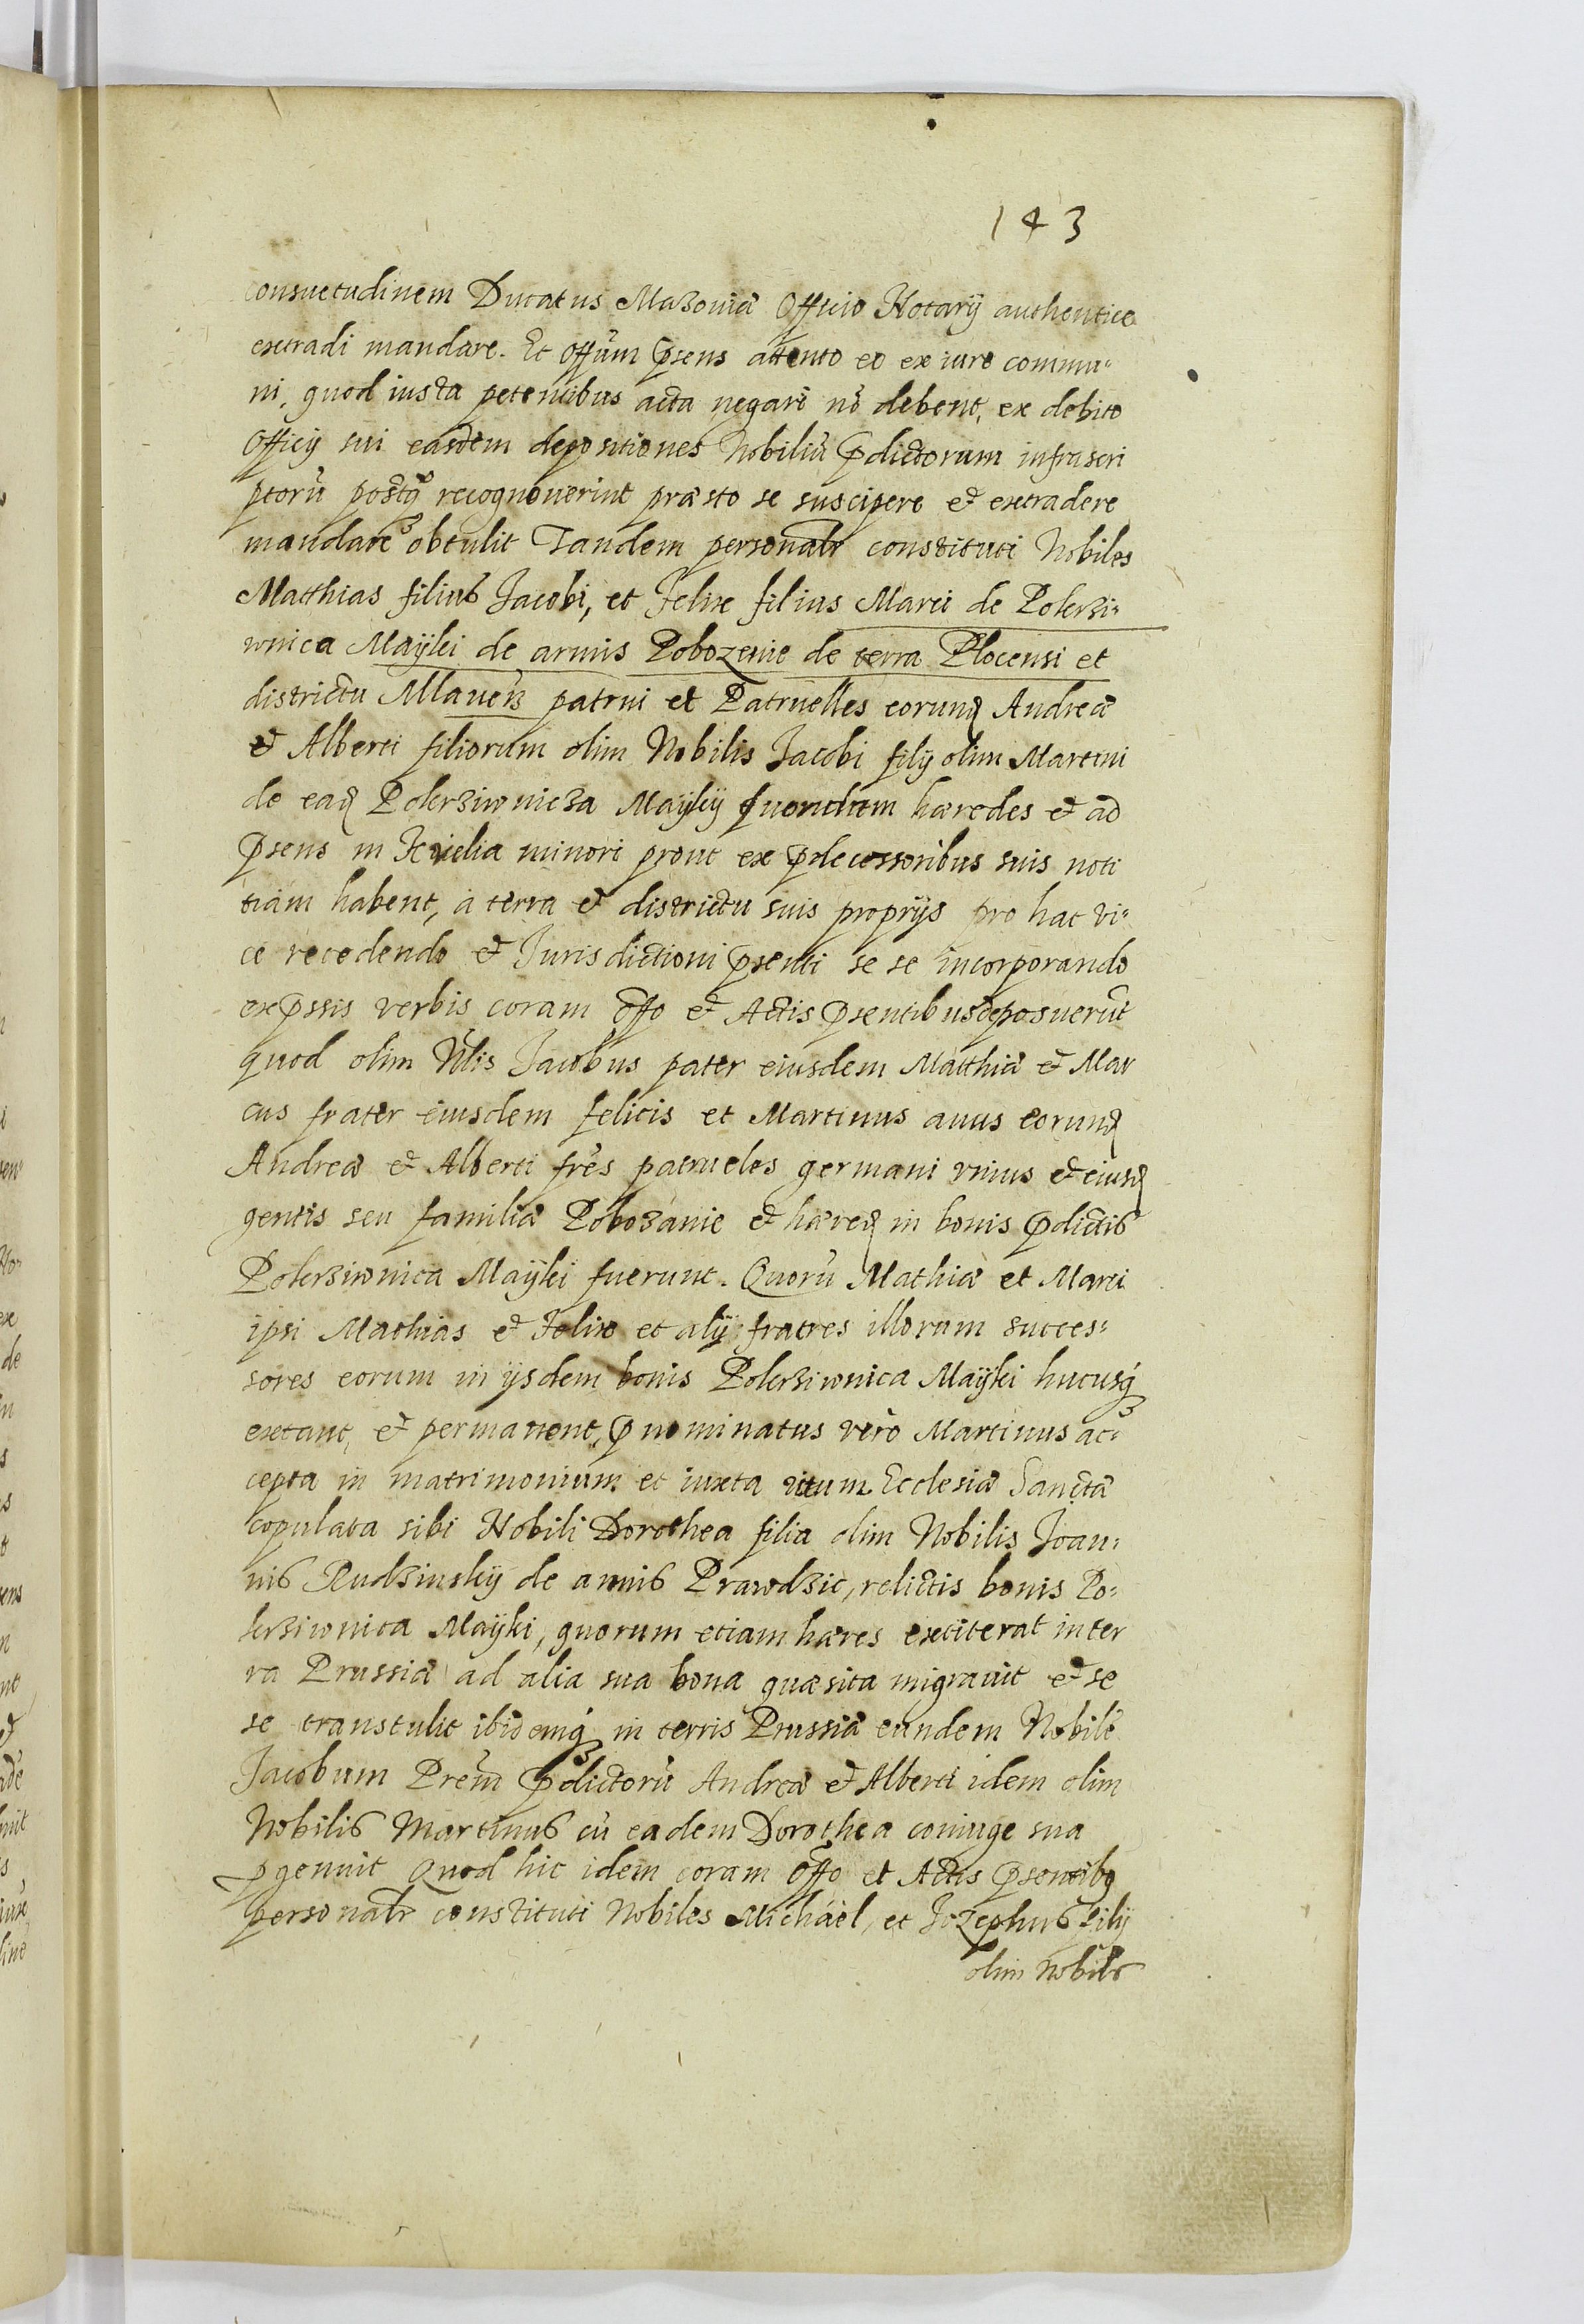 143
consuetudinem Ducatus Mazoviæ Officio Notarÿ authentice
extradi mandare. Et Offũm p̃sens attento eo ex iure commu-
ni, quod iusta petentibus acta negari nõ debent, ex debito
Officÿ sui easdem depositiones Nobiliũ p̃dictorum infrascri
ptorũ postq̃ recognoverint præsto se suscipere et extradere
mandare obtulit Tandem personalr constituti Nobiles
Matthias filius Jacobi, et Felix filius Marci de Pokrzi-
wnica Maÿki de armis Pobozenie de terra Plocensi et
districtu Mlaveñ patrui et Patruelles eorund Andreæ
et Alberti filiorum olim Nobilis Jacobi filÿ olim Martini
de ead Pokrziwnicza Maÿkÿ quorudum hæredes et ad
p̃sens in minori prout ex p̃decessoribus suis noti
tiam habent, à terra et districtu suis proprÿs pro hac vi-
ce recedendo et Jurisdictioni p̃senti se se incorporando
exp̃ssis verbis coram offo et Actis p̃sentibus deposuerũt
quod olim Nlis Jacobus pater eiusdem Matthiæ et Mar
cus frater eiusdem felicis et Martinus avus eorund
Andreæ et Alberti frẽs patrueles germani vnius et eiusd
gentis seu familiæ Pobozánie et hæred in bonis p̃dictis
Pokrziwnica Maÿki fuerunt. Quorũ Mathiæ et Marci
ipsi Mathias et Felix et alÿ fratres illorum succes-
sores eorum in ÿsdem bonis Pokrziwnica Maÿki hucusq́
extant, et permanent, p̃nominatus verò Martinus ac-
cepta in matrimonium et iuxta ritum Ecclesiæ Sanctæ
copulata sibi Nobili Dorothea filia olim Nobilis Joan-
nis Rudzinskÿ de armis Prawdzic, relictis bonis Po-
krziwnica Maÿki, quorum etiam hæres extiterat in ter
ra Prussiæ ad alia sua bona quæsita migravit et se
se transtulit ibidemq́ in terris Prussiæ eundem Nobilẽ
Jacobum Prẽm p̃dictorũ Andreæ et Alberti idem olim
Nobilis Martinus cũ eadem Dorothea coniuge sua
pgenuit Quod hic idem coram offo et Actis p̃sentibq
personalr constituti Nobiles Michaël, et Jozephus filÿ
olim Nobilis